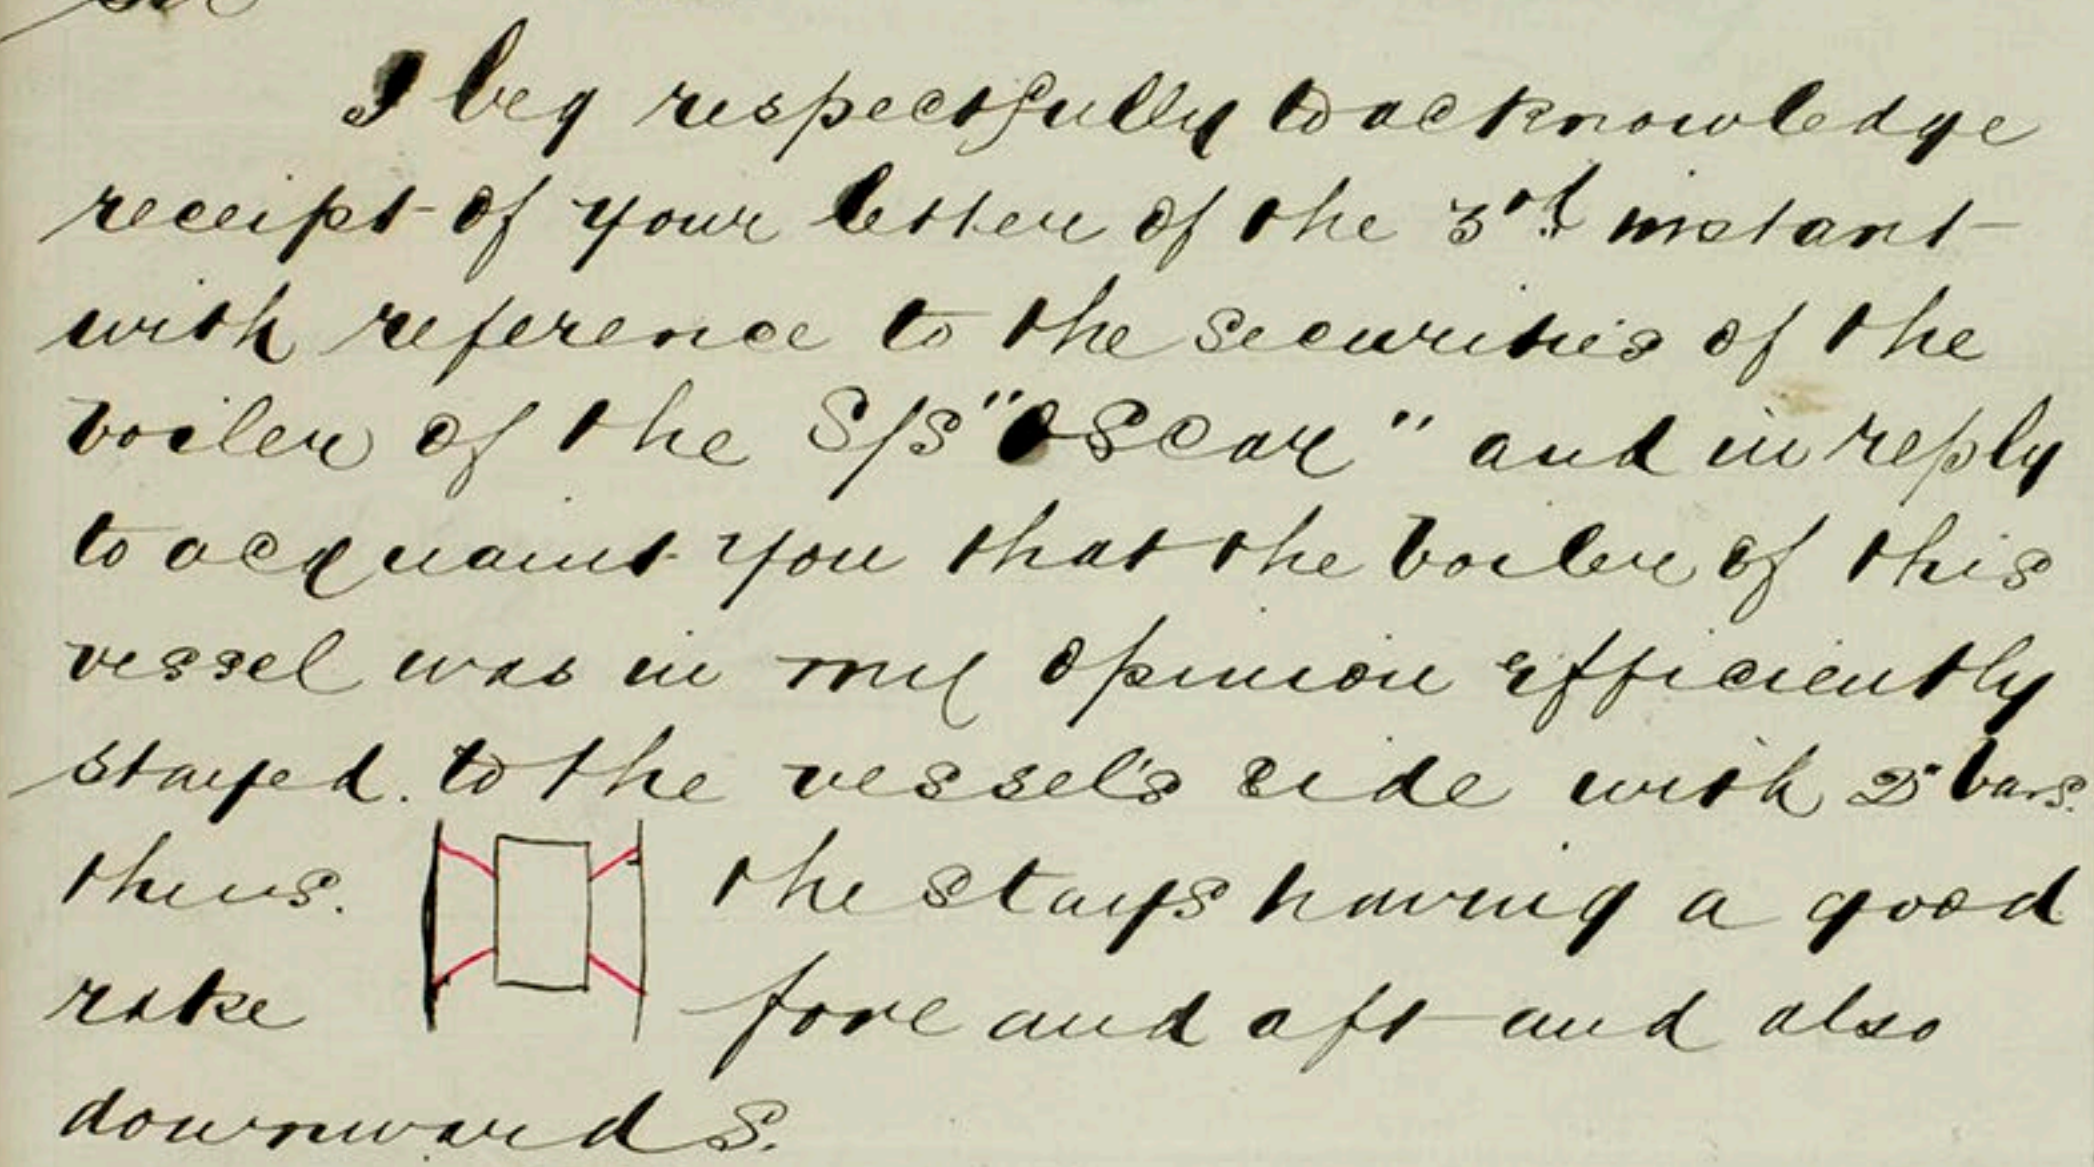 Sir
I beg respectfully to acknowledge
receipt of your letter of the 3rd instant
with reference to the securities of the
boiler of the S/S "Oscar" and in reply
to acquaint you that the boiler of this
vessel was in my opinion efficiently
stayed. to the vessel's side with 2" bars.
thus. the stays having a good
rake fore and aft and also
downwards.